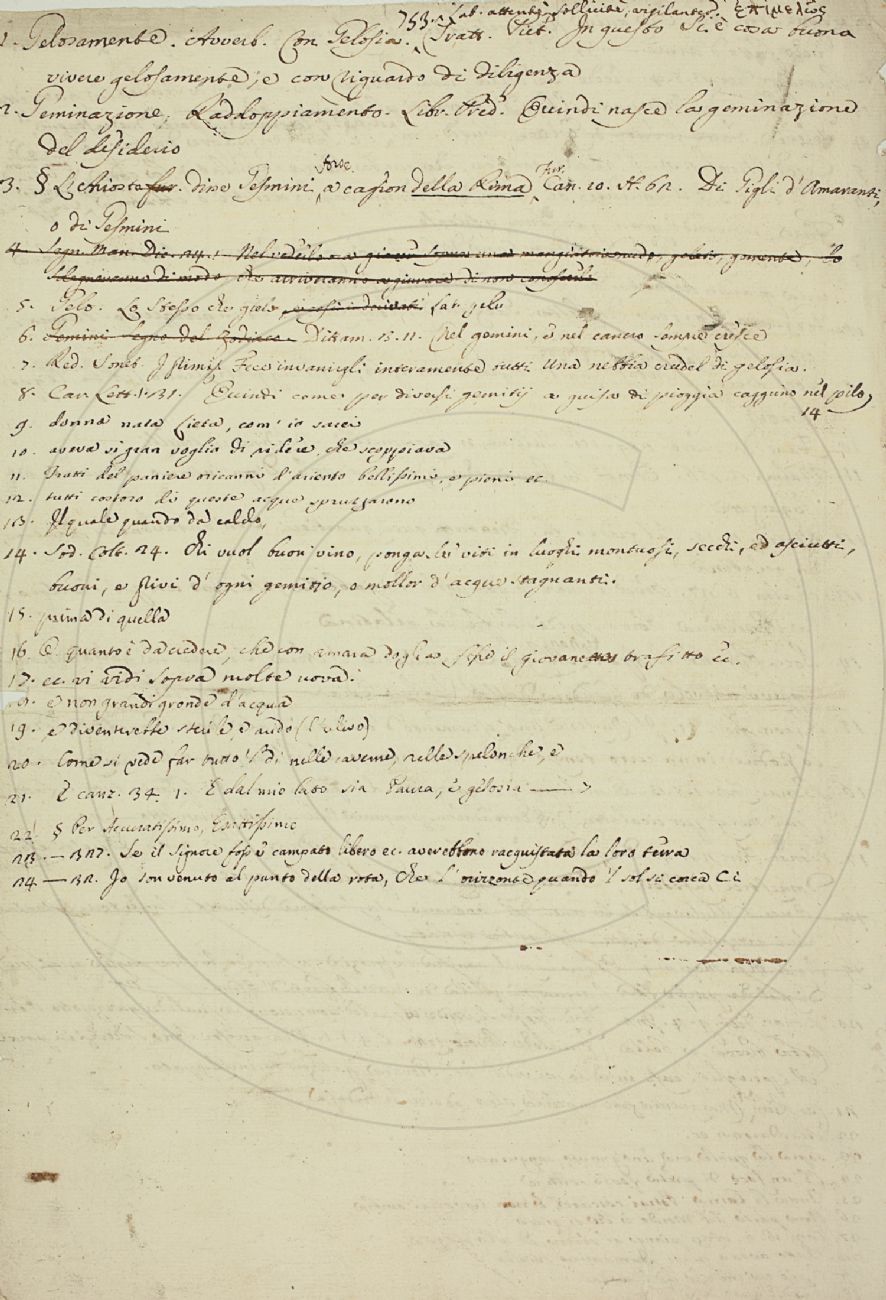 753. Lat. attentè, sollicitè, vigilanter. ἐπιμελῶς
1. Gelosamente. Avverb. Con Gelosia. Tratt. Piet. In questo si è cosa buona
vivere gelosamente, e con riguardo di diligenza
2. Geminazione, Raddoppiamento. Libr. Pred. Quindi nasce la geminazione
del desiderio
3. § L. Chiosa fur. dine Gesmini, forse a cagion della Rima, Fur. Can. 10. St. 62. Di Gigli d'Amaranti,
o di Gesmini
4. Segn. Man. Dic. 24. 1. Nel gelato, gemente, Lo
di modo, che arriveranno a giurare di non
5. Gelo. Lo Stesso che gielo Lat. gelu
6. Gemini Segno del Zodiaco. Dittam. 15. 11. Nel gemini, e nel cancro sempre cresce
7. Red. Sonet. Istimiss. Fece invanirgli interamente tutti Una nebbia crudel di gelosia.
8. Car. Lett. 1. 31. Quindi come per diversi gemitij a guisa di pioggia caggiono nel pilo
14
9. donna nata lieta, com' io sarei
10. aveva sì gran voglia di ridere, che scoppiava
11. Tratti del paniere oricanni d'ariento bellissimi, e pieni ec.
12. tutti costoro di queste acque spruzzarono
13. Il quale quando dà caldo,
14. Sod. Colt. 24. Chi vuol buon vino, ponga le viti in luoghi montuosi, secchi, ed asciutti,
buoni, e privi d' ogni gemitio, o mollor d' acque stagnanti.
15. prima di quella
16. E quanto è da credere, che con amara doglia il giovane trafitto ec.
17. ec. vi vidi sopra molte uova.
18. e non grandi gronde d'acqua
19. e diventerebbe sterile, e arido (l'ulivo)
20. Come si vede far tutto 'l dì nelle caverne, nelle spelonche, e
21. E canz. 34. 1. E dal mio lato sia Paura, e gelosia
22. § Per Accuratissimo, Esattissimo
23. — 327. Se il Signore fosse campato libero ec. averebbono racquistata la loro terra
24. — 32. Io son venuto al punto della rota, Che l' orizzonte quando 'l sol si corca Ci